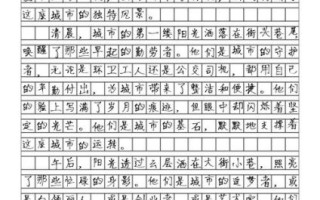 这座城市的独特风景。
清晨，城市的第一缕阳光洒在街头巷尾
唤醒了那些早起的勤劳者。他们是城市的守护
者，无论是环卫工人还是公交司机，都用自己
的辛勤付出，为城市带来了整洁和便捷。他们
的脸上写满了岁月的痕迹，但眼中却闪烁着坚
定的光芒。他们是城市的基石，默默地支撑着
这座城市的运转。
午后，阳光透过云层洒在大街小巷，照亮
了那些忙碌的身影。他们是城市的追梦者，或